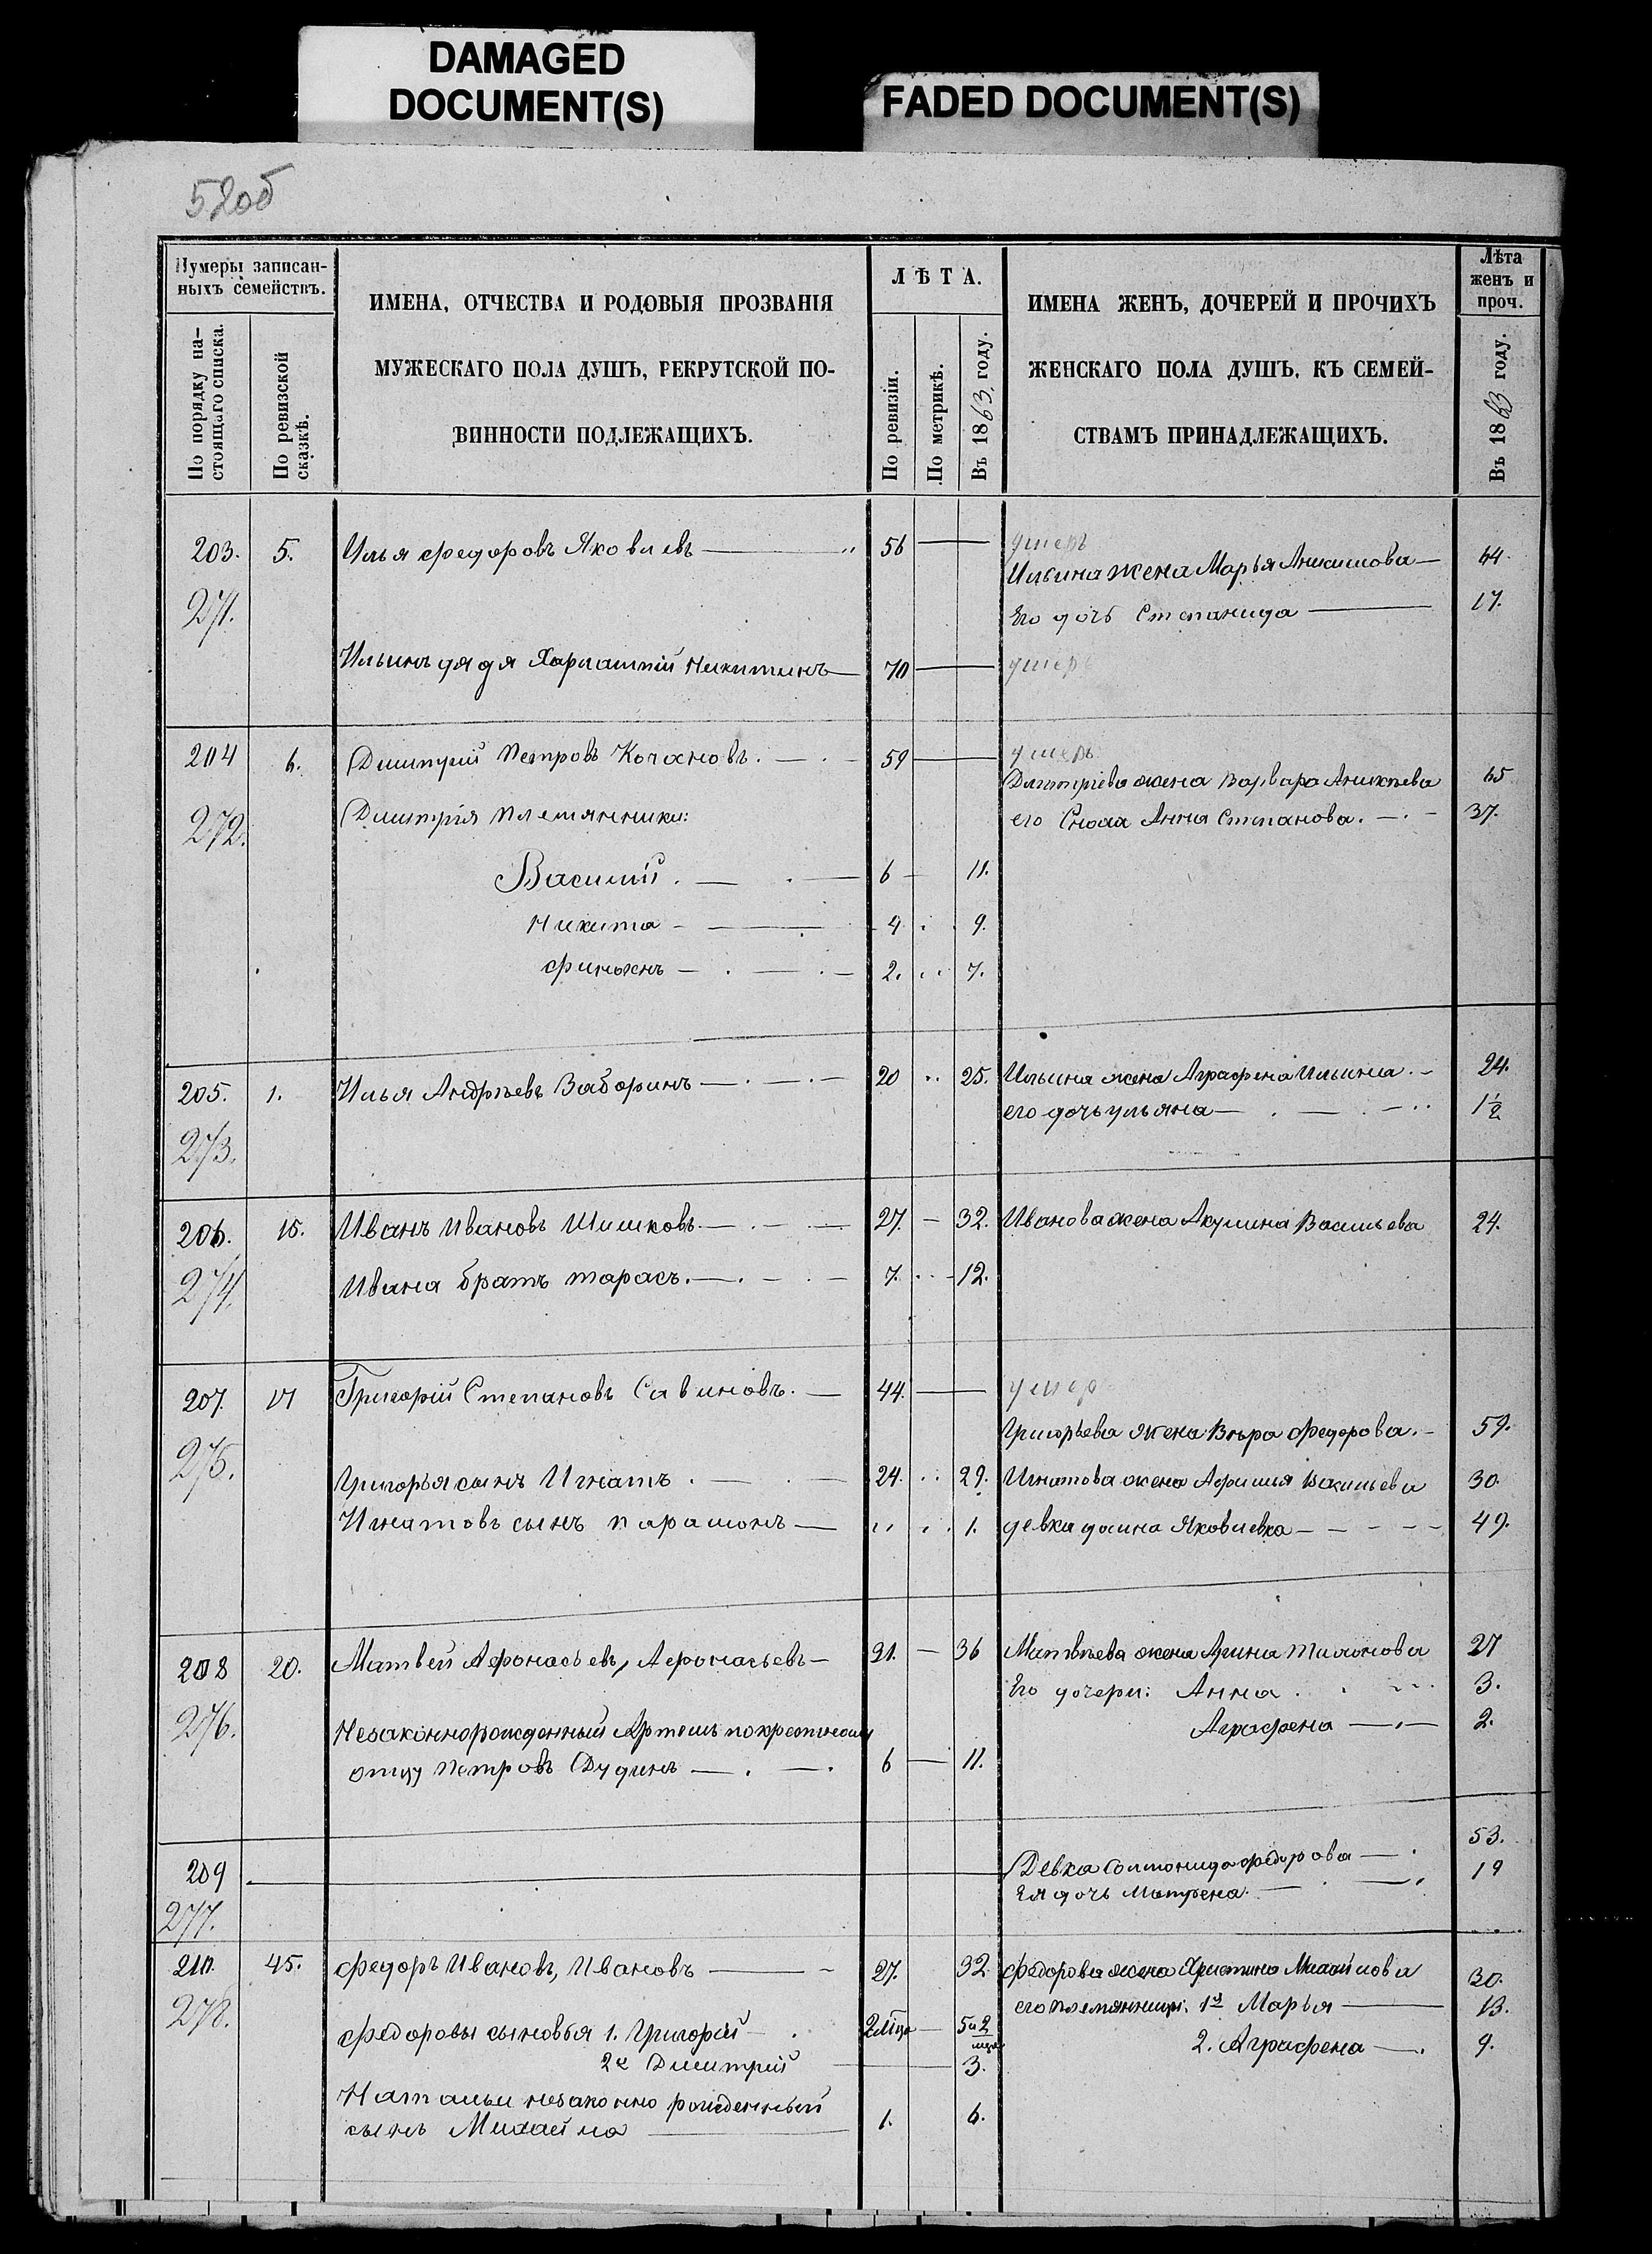 DAMAGED
DOCUMENT(S)
FADED DOCUMENT(S)
52об
Нумеры записан-
ныхъ семействъ.
По порядку на-
стоящаго списка.
По ревизской
сказкѣ.
ИМЕНА, ОТЧЕСТВА И РОДОВЫЯ ПРОЗВАНІЯ
МУЖЕСКАГО ПОЛА ДУШЪ, РЕКРУТСКОЙ ПО-
ВИННОСТИ ПОДЛЕЖАЩИХЪ.
ЛѢТА.
По ревизіи.
По метрикѣ.
Въ 1863 году.
ИМЕНА ЖЕНЪ, ДОЧЕРЕЙ И ПРОЧИХЪ
ЖЕНСКАГО ПОЛА ДУШЪ, КЪ СЕМЕЙ-
СТВАМЪ ПРИНАДЛЕЖАЩИХЪ.
Лѣта
женъ и
проч.
Въ 1863 году.
203. 5. Илья Федоровъ Яковлевъ 56 умеръ
271. Ильина жена Марья Анисимова 64.
Его дочь Степанида 17.
Ильинъ дядя Харлампій Никитинъ 70 умеръ
204 6. Дмитрій Петровъ Кочановъ. 59 умеръ
Дмитріева жена Варвара Аникѣева 65
272. Дмитрія племянники: его Сноха Анна Степанова. 37.
Василій. 6 11.
Никита 4 9.
Финогенъ 2. 7.
205. 1. Илья Андрѣевъ Заборинъ 20 25. Ильина жена Аграфена Ильина 24.
его дочь Ульяна 1½
273.
206. 15. Иванъ Ивановъ Шишковъ. 27. 32. Иванова жена Акулина Васильева 24.
274. Ивана братъ Тарасъ. 7. 12.
207. 17 Григорій Степановъ Савиновъ. 44. умеръ
Григорьева жена Вѣра Федорова. 59.
275. Григорья сынъ Игнатъ. 24. 29. Игнатова жена Афимья Васильева 30.
Игнатовъ сынъ Парамонъ 1. девка Домна Яковлевка 49.
208 20. Матвей Афонасьевъ, Афонасьевъ 31. 36 Матвѣева жена Арина Тимонова 27
Его дочери: Анна 3.
276. Аграфена 2.
Незаконнорожденный Артемъ по крестному
отцу Петровъ Дудинъ 6 11.
53.
209 Девка Соломонида Федорова
Ея дочь Матрена. 19
277.
210. 45. Федоръ Ивановъ, Ивановъ 27. 32 Федорова жена Христина Михайлова 30.
278. его племянницы: 1я Марья 13.
Федоровы сыновья 1. Григорій 5 и 2
2. Аграфена 9.
2й Дмитрій 3.
Натальи незаконно рожденный
сынъ Михайла 1. 6.